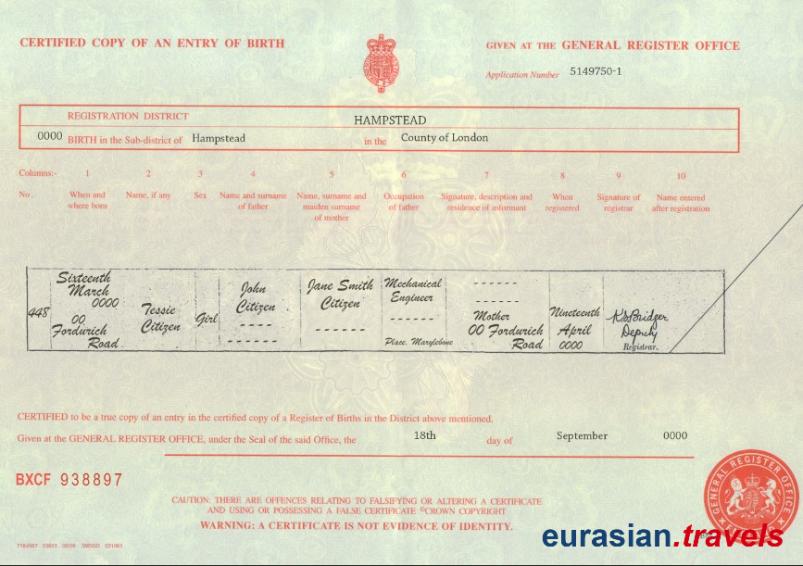 CERTIFIED COPY OF AN ENTRY OF BIRTH
GIVEN AT THE GENERAL REGISTER OFFICE
Application Number 5149750-1
REGISTRATION DISTRICT HAMPSTEAD
0000 BIRTH in the Sub-district of Hampstead in the County of London
Columns:- 1 2 3 4 5 6 7 8 9 10
No. When and where born Name, if any Sex Name and surname of father Name, surname and maiden surname of mother Occupation of father Signature, description and residence of informant When registered Signature of registrar Name entered after registration
448
Sixteenth
March
0000
00
Fordwrich
Road
Tessie
Citizen
Girl
John
Citizen
- - - -
- - - - - -
Jane Smith
Citizen
- - - - - -
Mechanical
Engineer
- - - - - -
Place. Marylebone
- - - - - -
- - - - - -
Mother
00 Fordwrich
Road
Nineteenth
April
0000
Deputy
Registrar.
CERTIFIED to be a true copy of an entry in the certified copy of a Register of Births in the District above mentioned.
Given at the GENERAL REGISTER OFFICE, under the Seal of the said Office, the 18th day of September 0000
BXCF 938897
CAUTION: THERE ARE OFFENCES RELATING TO FALSIFYING OR ALTERING A CERTIFICATE
AND USING OR POSSESSING A FALSE CERTIFICATE ©CROWN COPYRIGHT
WARNING: A CERTIFICATE IS NOT EVIDENCE OF IDENTITY.
GENERAL REGISTER OFFICE
eurasian.travels